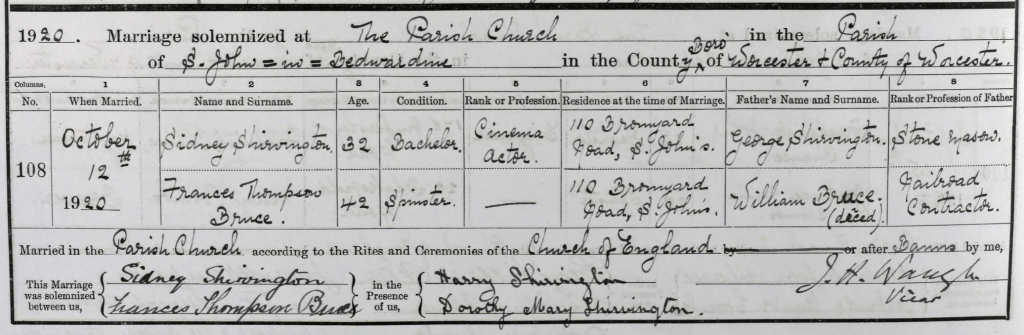 1920. Marriage solemnized at The Parish Church in the Parish
of S. John = in = Bedwardine in the County Boro' of Worcester & County of Worcester.
Columns, 1 2 3 4 5 6 7 8
No. When Married. Name and Surname. Age. Condition. Rank or Profession. Residence at the time of Marriage. Father's Name and Surname. Rank or Profession of Father
108
October 12th 1920
Sidney Shirvington. 32 Bachelor. Cinema Actor. 110 Bromyard Road, S. John's. George Shirvington. Stone Mason.
Frances Thompson Bruce. 42 Spinster. — 110 Bromyard Road, S. John's. William Bruce. (deced) Railroad Contractor.
Married in the Parish Church according to the Rites and Ceremonies of the Church of England by or after Banns by me,
This Marriage was solemnized between us,
Sidney Shirvington
Frances Thompson Bruce
in the Presence of us,
Harry Shirvington
Dorothy Mary Shirvington.
J. H. Waugh
Vicar